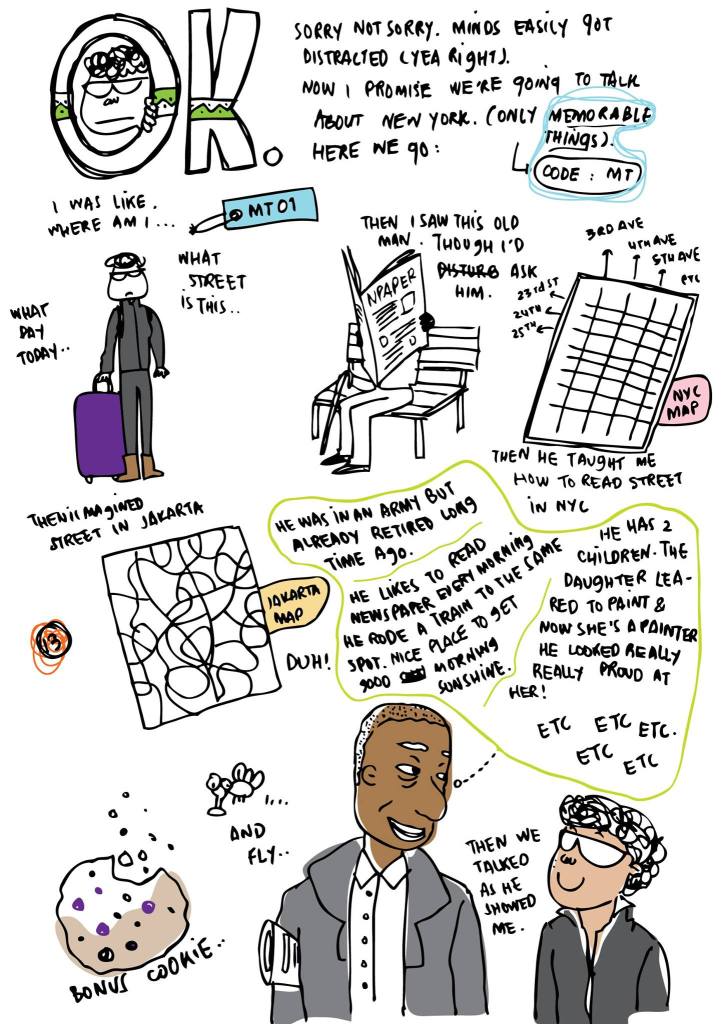 OK.
SORRY NOT SORRY. MINDS EASILY GOT
DISTRACTED (YEA RIGHT).
NOW I PROMISE WE'RE GOING TO TALK
ABOUT NEW YORK. (ONLY MEMORABLE
THINGS).
HERE WE GO:
CODE : MT
I WAS LIKE.
WHERE AM I...
MT 01
WHAT
STREET
IS THIS..
WHAT
DAY
TODAY..
THEN I SAW THIS OLD
MAN. THOUGH I'D
DISTURB ASK
HIM.
NPAPER
3RD AVE
4TH AVE
5TH AVE
ETC
23RD ST
24TH
25TH
NYC
MAP
THEN HE TAUGHT ME
HOW TO READ STREET
IN NYC
THEN I IMAGINED
STREET IN JAKARTA
JAKARTA
MAP
DUH!
13
HE WAS IN AN ARMY BUT
ALREADY RETIRED LONG
TIME AGO.
HE LIKES TO READ
NEWSPAPER EVERY MORNING
HE RODE A TRAIN TO THE SAME
SPOT. NICE PLACE TO GET
GOOD MORNING
SUNSHINE.
HE HAS 2
CHILDREN. THE
DAUGHTER LEA-
RED TO PAINT &
NOW SHE'S A PAINTER
HE LOOKED REALLY
REALLY PROUD AT
HER!
ETC ETC ETC.
ETC
ETC
AND
FLY..
THEN WE
TALKED
AS HE
SHOWED
ME.
BONUS COOKIE..